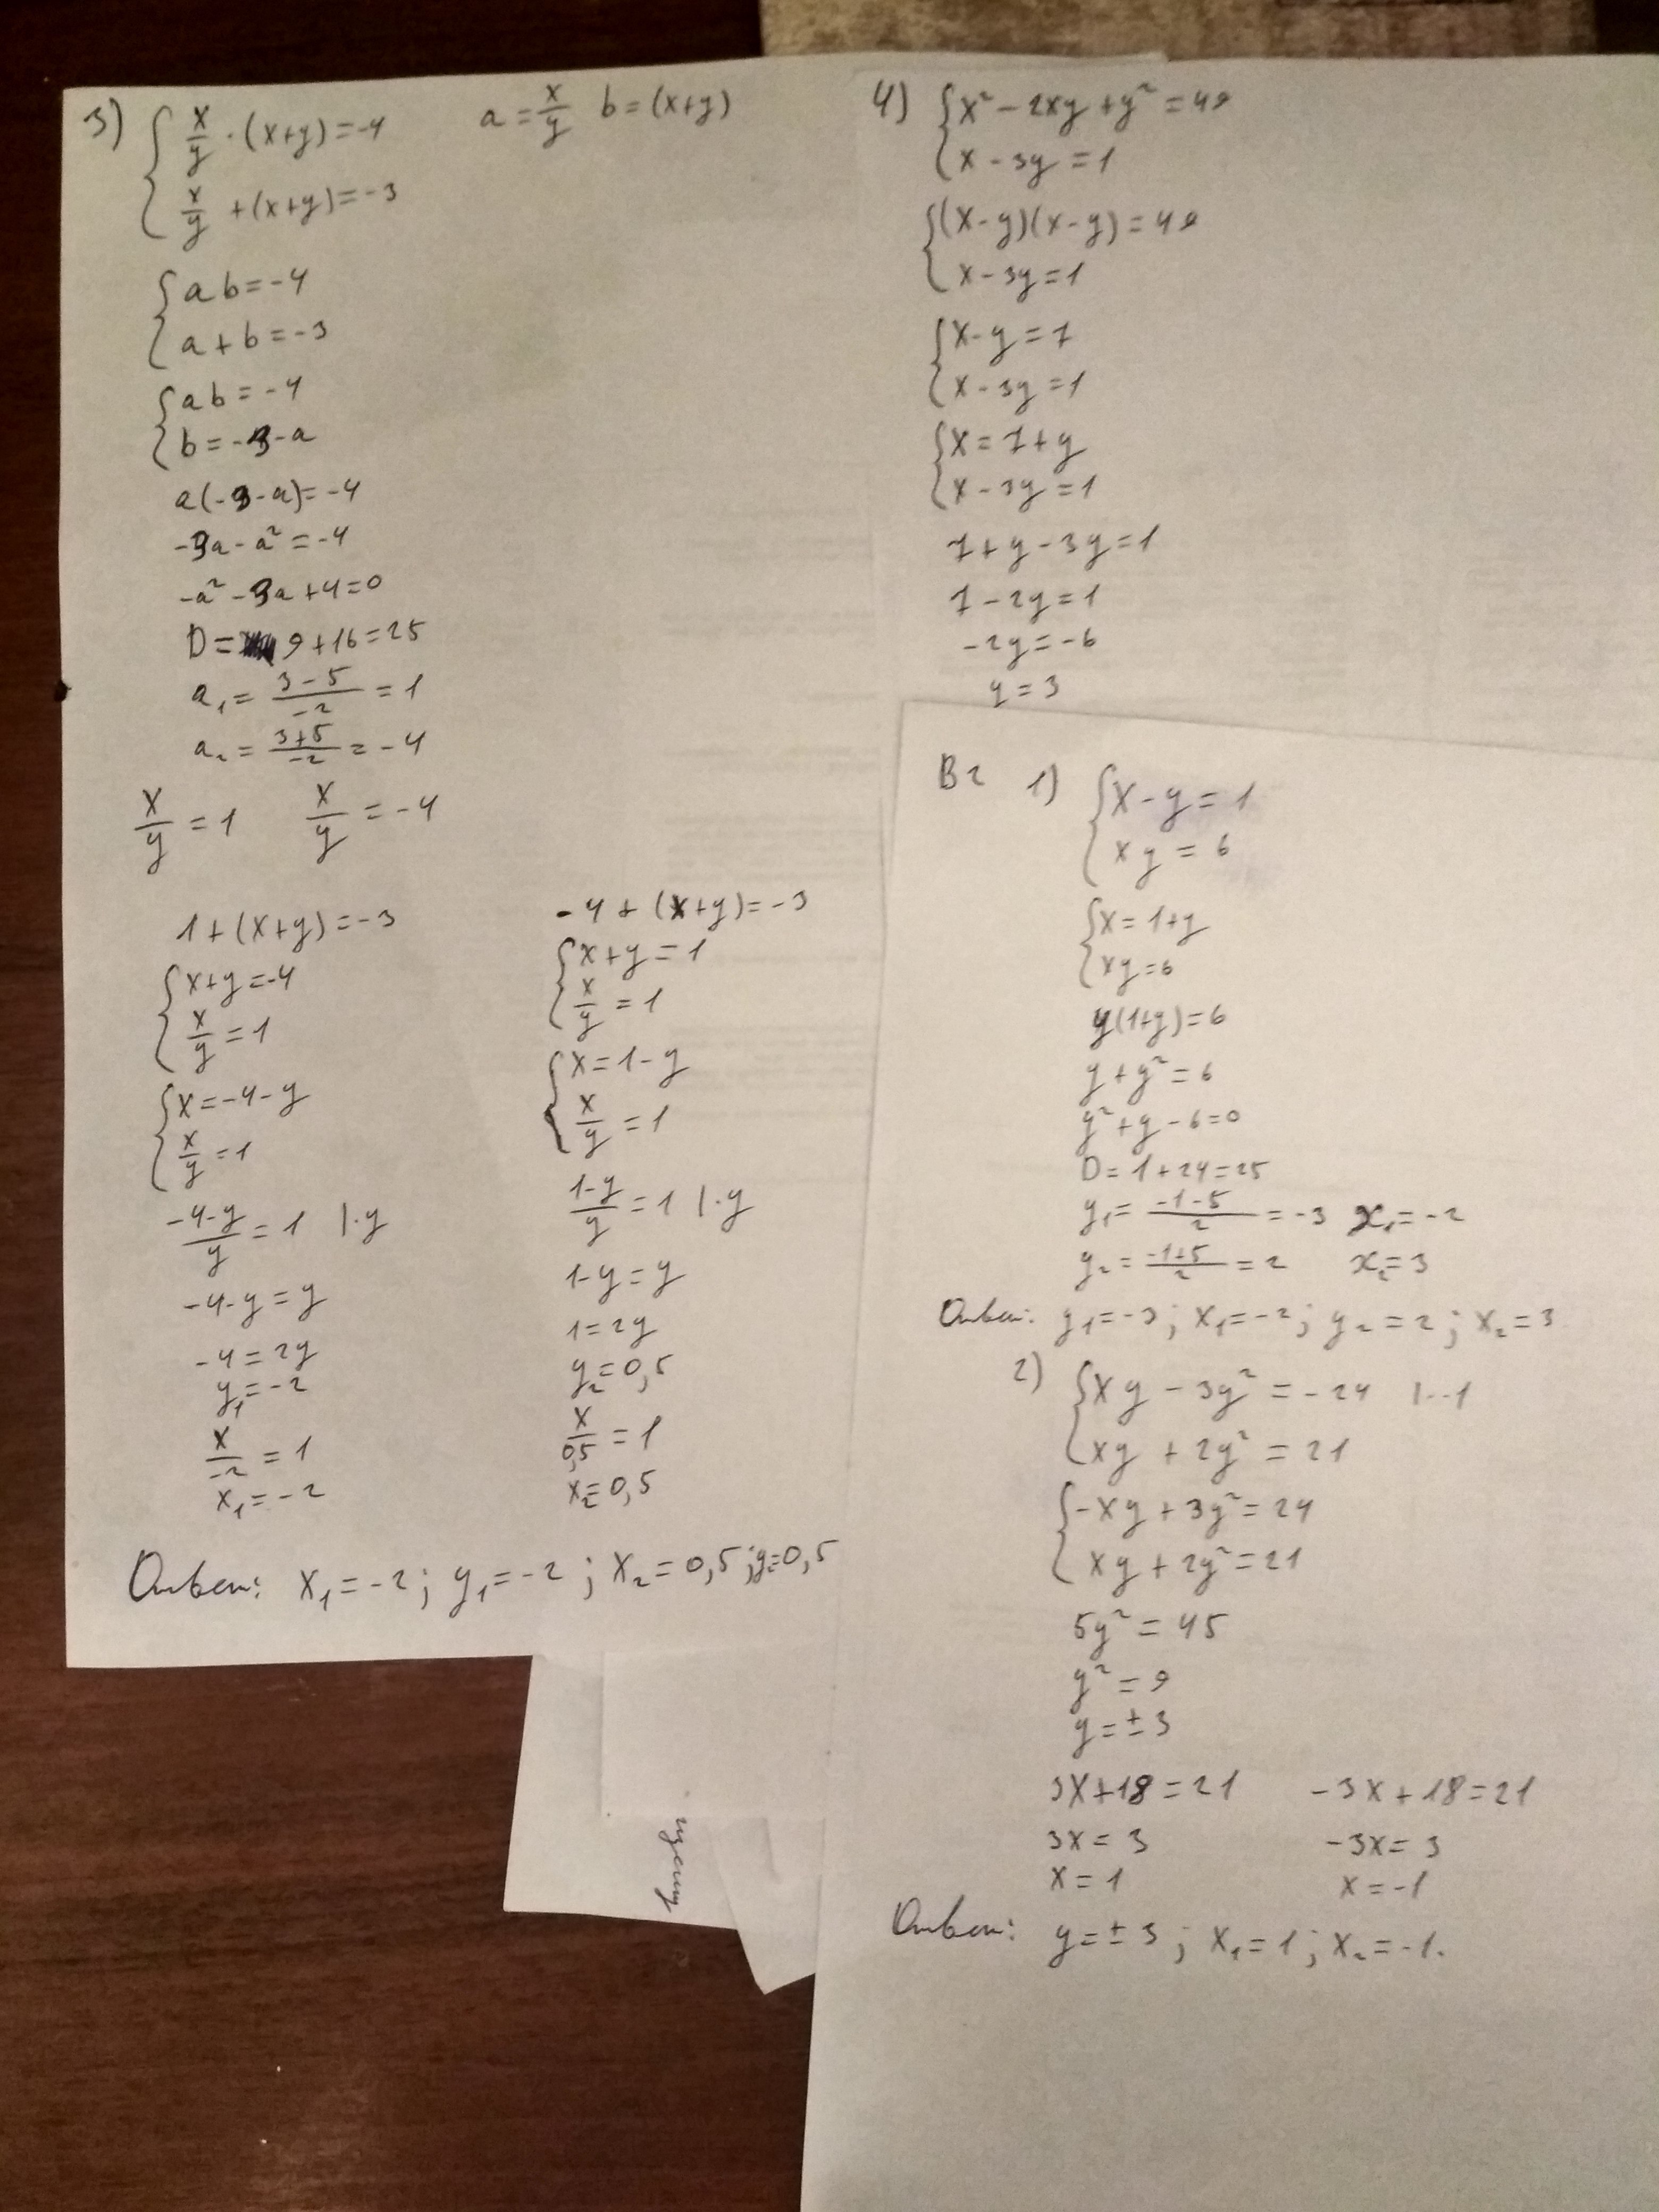 3) { x/y · (x+y) = -4    a = x/y  b = (x+y)
x/y + (x+y) = -3
{ ab = -4
a + b = -3
{ ab = -4
b = -3-a
a(-3-a) = -4
-3a - a² = -4
-a² - 3a + 4 = 0
D = 9 + 16 = 25
a₁ = (3-5)/-2 = 1
a₂ = (3+5)/-2 = -4
x/y = 1    x/y = -4
1 + (x+y) = -3
{ x+y = -4
x/y = 1
{ x = -4-y
x/y = 1
(-4-y)/y = 1 |·y
-4-y = y
-4 = 2y
y₁ = -2
x/-2 = 1
x₁ = -2
-4 + (x+y) = -3
{ x+y = 1
x/y = 1
{ x = 1-y
x/y = 1
(1-y)/y = 1 |·y
1-y = y
1 = 2y
y₂ = 0,5
x/0,5 = 1
x₂ = 0,5
Ответ: x₁ = -2; y₁ = -2; x₂ = 0,5; y₂ = 0,5
4) { x² - 2xy + y² = 49
x - 3y = 1
{ (x-y)(x-y) = 49
x - 3y = 1
{ x - y = 7
x - 3y = 1
{ x = 7 + y
x - 3y = 1
7 + y - 3y = 1
7 - 2y = 1
-2y = -6
y = 3
В2 1) { x - y = 1
xy = 6
{ x = 1+y
xy = 6
y(1+y) = 6
y + y² = 6
y² + y - 6 = 0
D = 1 + 24 = 25
y₁ = (-1-5)/2 = -3  x₁ = -2
y₂ = (-1+5)/2 = 2  x₂ = 3
Ответ: y₁ = -3; x₁ = -2; y₂ = 2; x₂ = 3
2) { xy - 3y² = -24 |·-1
xy + 2y² = 21
{ -xy + 3y² = 24
xy + 2y² = 21
5y² = 45
y² = 9
y = ±3
3x + 18 = 21    -3x + 18 = 21
3x = 3    -3x = 3
x = 1    x = -1
Ответ: y = ±3; x₁ = 1; x₂ = -1.